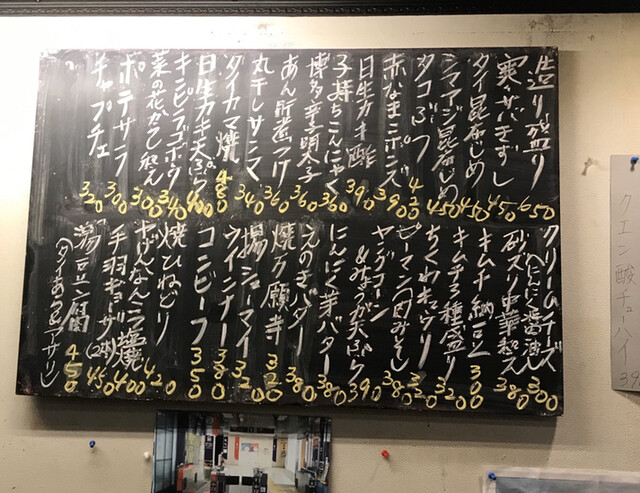 造り盛り 650
寒サバきずし 450
タイ昆布じめ 450
シマアジ昆布じめ 450
タコぶつ 420
赤なまこポンズ 390
日生カキ酢 390
子持こんにゃく 360
博多辛子明太子 360
あん肝煮つけ 360
丸干しサンマ 340
タイカマ焼 480
日生カキ天ぷら 400
キンピラゴボウ 340
菜の花からし和え 300
ポテサラ 300
チャプチェ 320
クリームチーズ 300
へしこ
砂ズリ中華和え 380
キムチ納豆 300
キムチ三種盛り
ちくわキュウリ 320
ピーマン肉みそ 380
ヤングコーン
&みょうが天ぷら 390
にんにく芽バター 380
えのきバター 380
焼万願寺 320
揚シューマイ 320
ウインナー 380
コンビーフ 350
焼ひねどり 420
400
手羽ギョーザ(2本) 450
湯豆腐 450
(タイあら
クエン酸チューハイ 39